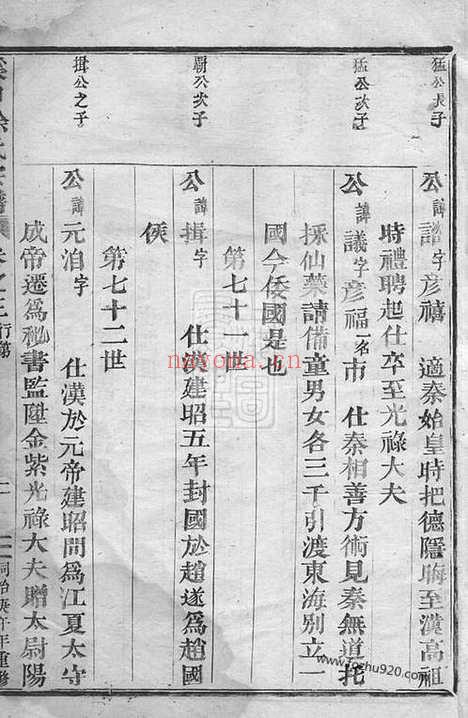 猛公長子
公諱字彥禧 適秦始皇時把德隱晦至漢高祖
時禮聘起仕卒至光祿大夫
猛公次子
公諱議字彥福名市 仕秦相善方術見秦無道托
採仙藥請備童男女各三千引渡東海別立一
國今倭國是也
第七十一世
公次子
公諱揖字 仕漢建昭五年封國於趙遂爲趙國
侯
第七十二世
揖公之子
公諱元洎字 仕漢於元帝建昭間爲江夏太守
成帝遷爲秘書監陞金紫光祿大夫贈太尉陽
徐氏宗譜 卷之三 行第 二 同治庚午年重修
nayona.cn
foxchu920.com